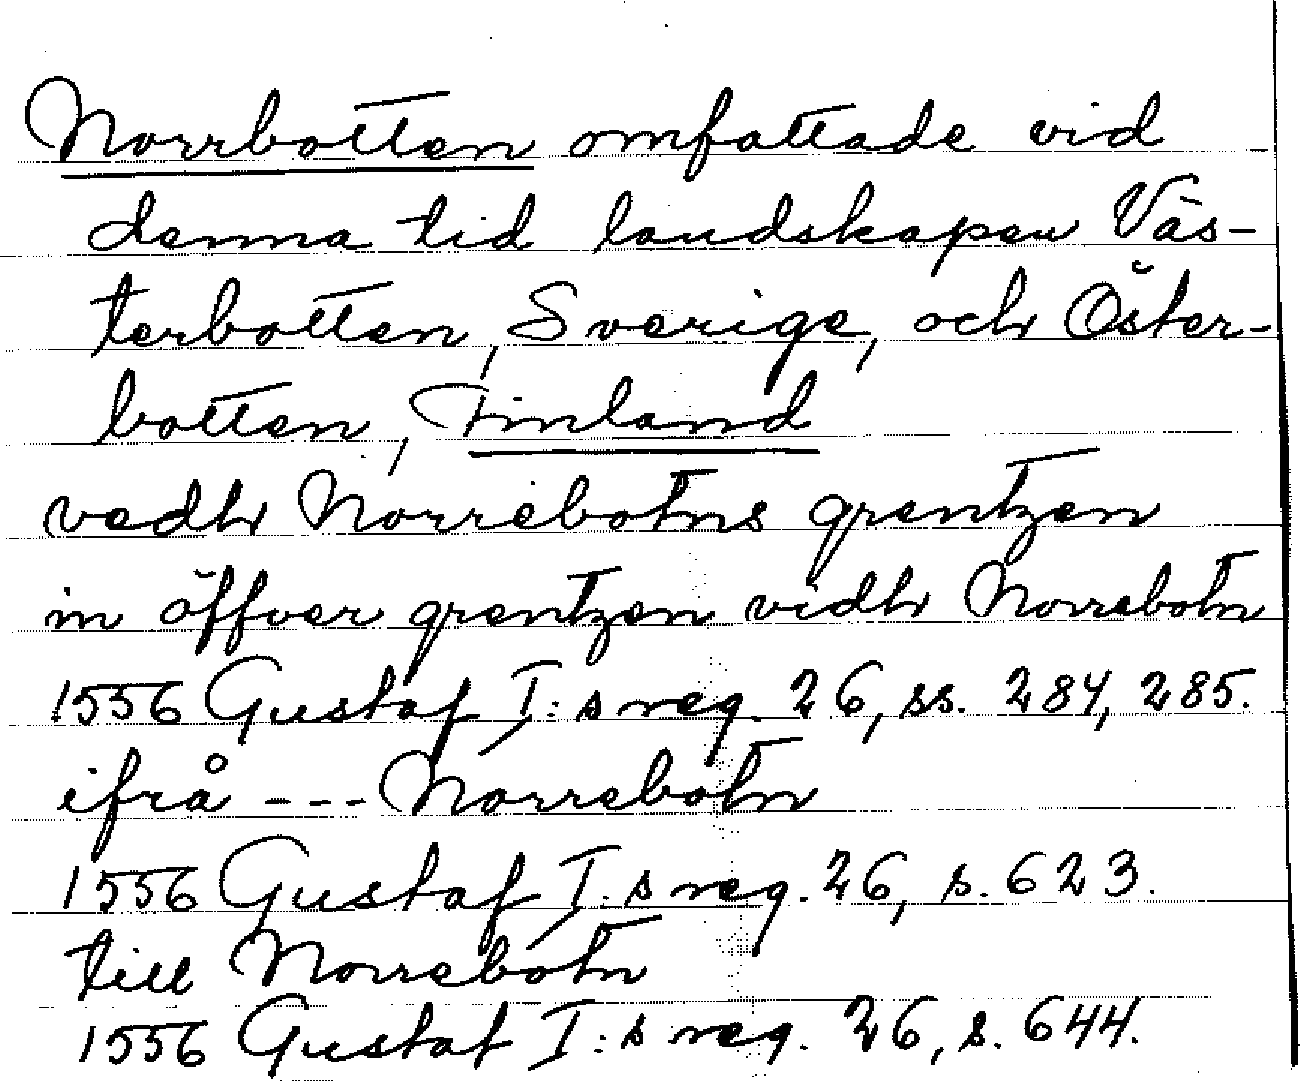 Norrbotten omfattade vid
denna tid landskapen Väs-
terbotten, Sverige, och Öster-
botten, Finland
vedh Norrebotns grentzen
in öffver grentzen vidh Norrebotn
1556 Gustaf I:s reg. 26, ss. 284, 285.
ifrå --- Norrebotn
1556 Gustaf I:s reg. 26, s. 623.
till Norrebotn
1556 Gustaf I:s reg. 26, s. 644.